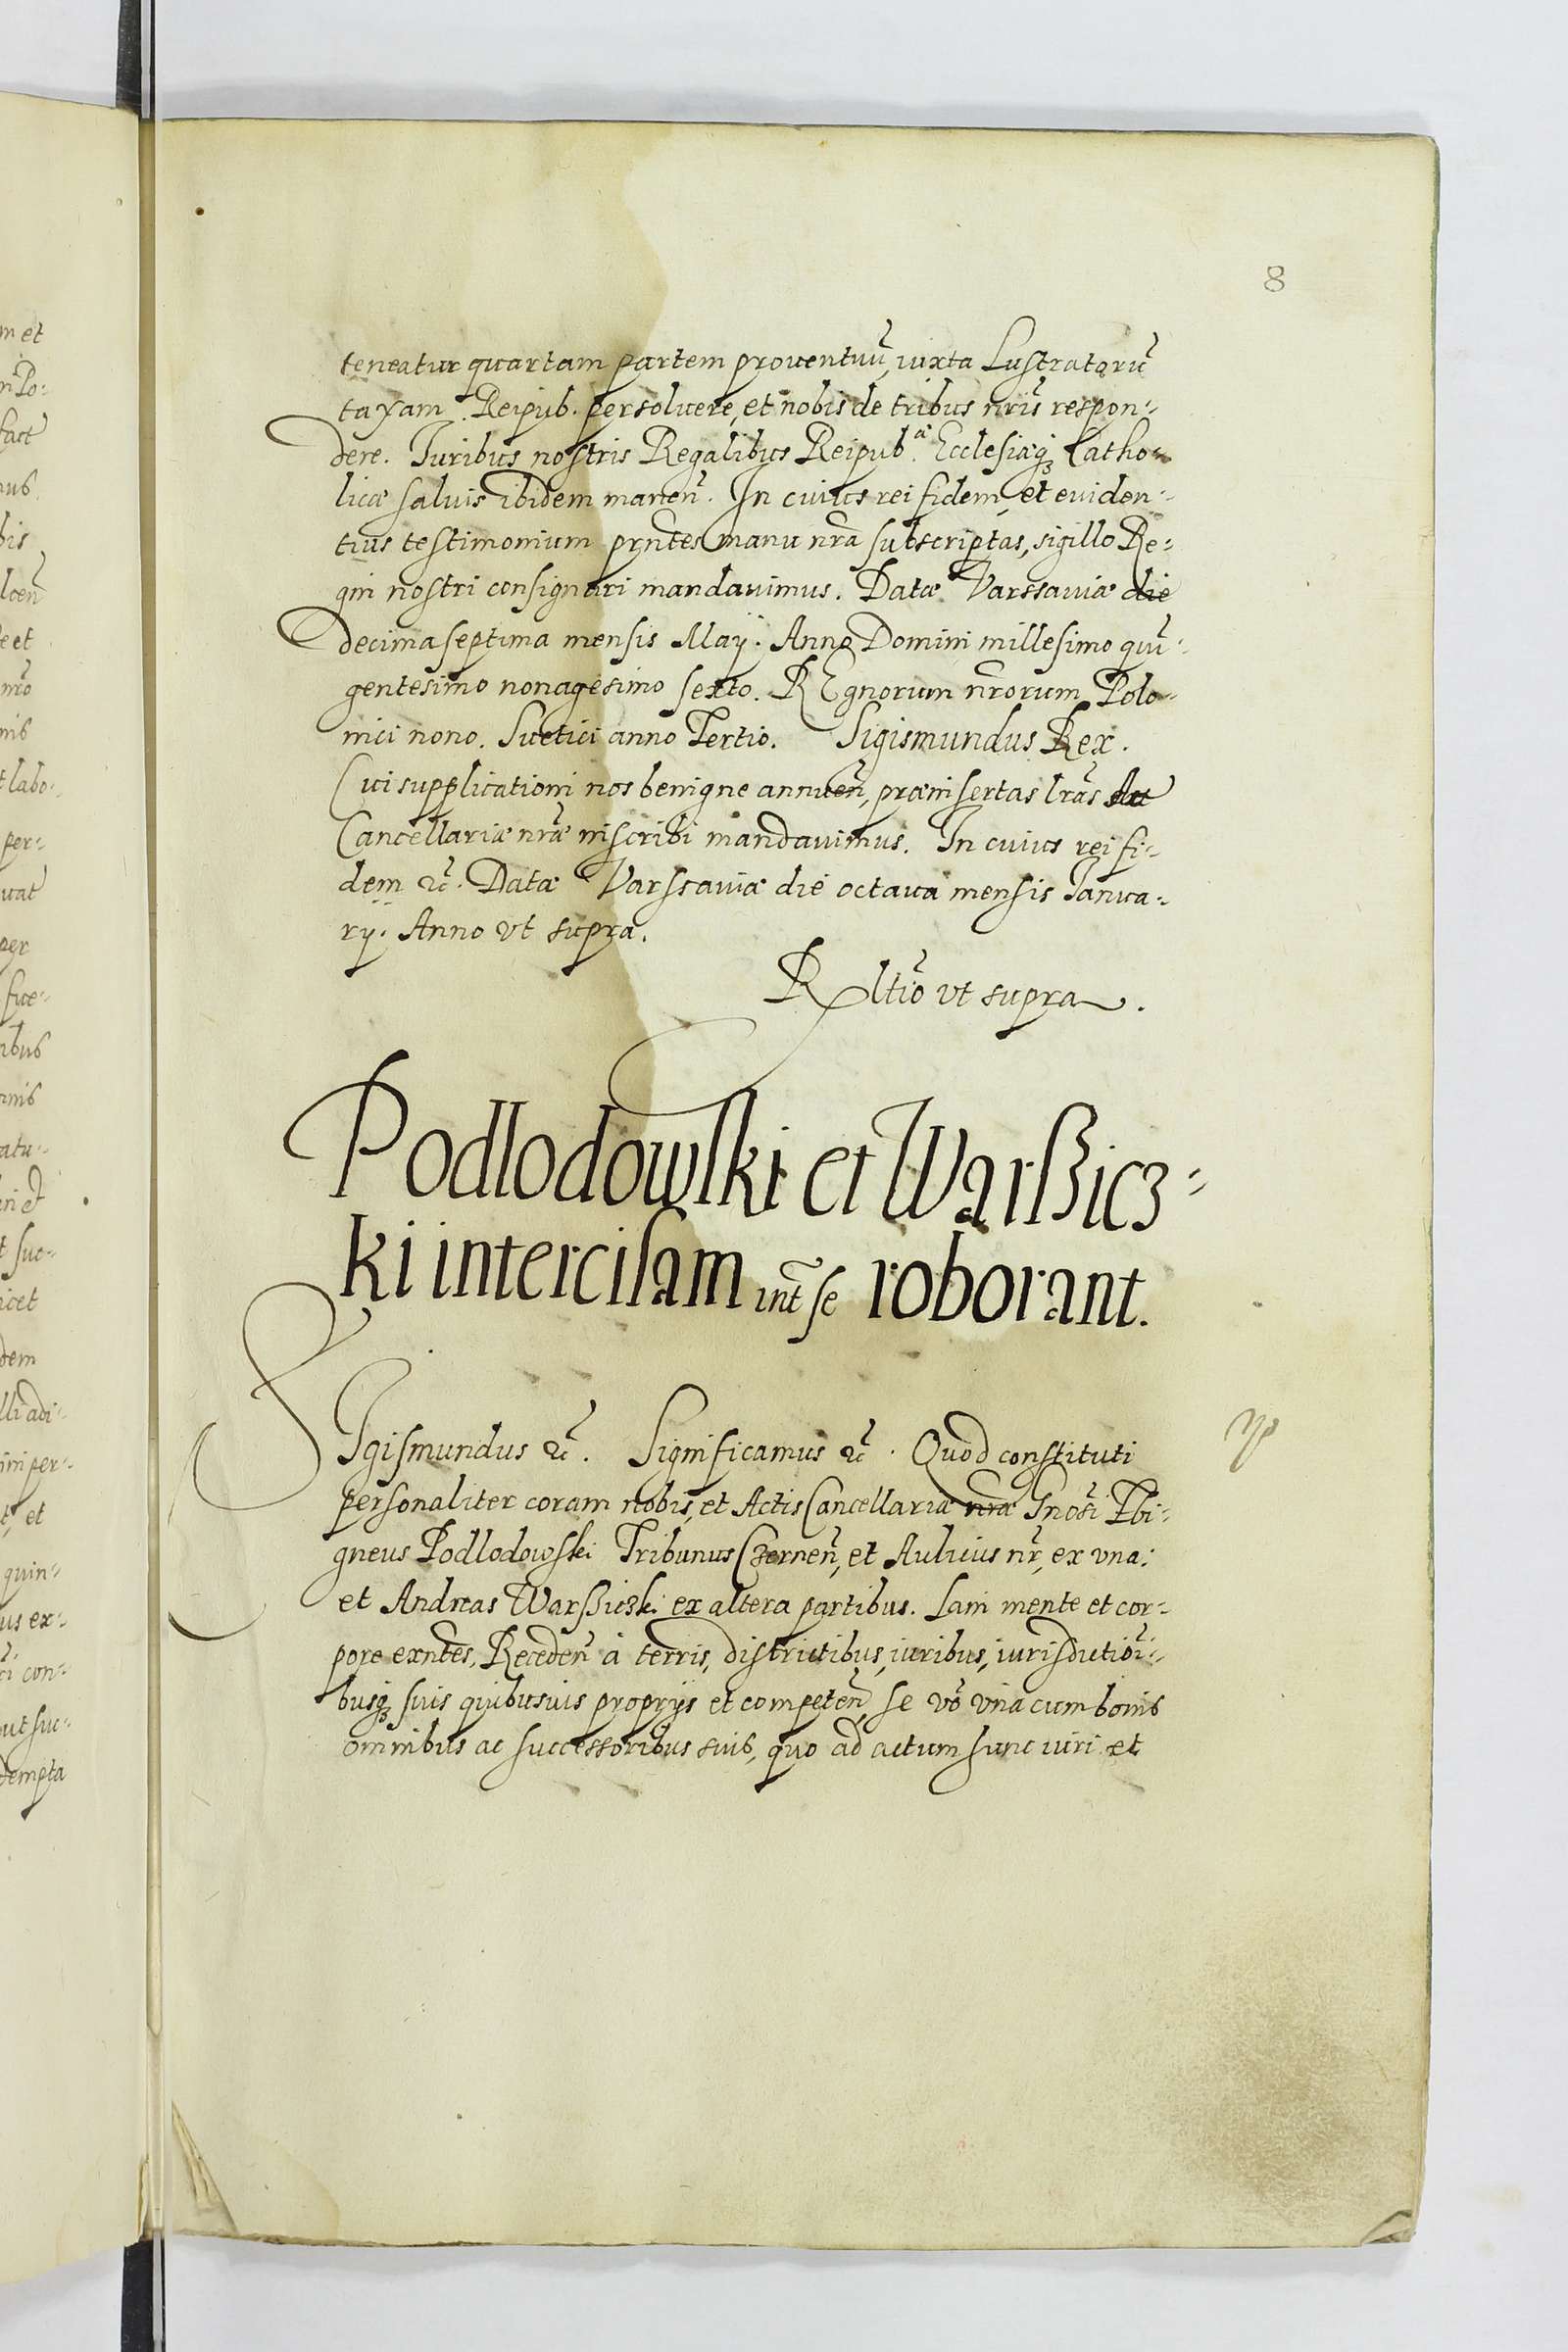 8
teneatur quartam partem prouentuũ, iuxta Lustratorũ
taxam Reipub. persoluere, et nobis de tribus nr̃is respon-
dere. Iuribus nostris Regalibus Reipub.ᵃᵉ Ecclesiæq; Catho-
licæ saluis ibidem maneñ. In cuius rei fidem, et euiden-
tius testimonium pr̃ntes manu nr̃a subscriptas, sigillo Re-
gni nostri consignari mandauimus. Datæ Varssauiæ die
decima septima mensis Maÿ. Anno Domini millesimo quĩ-
gentesimo nonagesimo sexto. REgnorum nr̃orum Polo-
nici nono. Suetici anno Tertio. Sigismundus Rex.
Cui supplicationi nos benigne annueñ, præinsertas lr̃as Act
Cancellariæ nr̃æ inscribi mandauimus. In cuius rei fi-
dem &c̃. Datæ Varssauiæ die octaua mensis Ianua-
rÿ. Anno vt supra.
Rltĩo vt supra.
Podlodowski et Warßicz-
ki intercisam int̃ se roborant.
SIgismundus &c̃. Significamus &c̃. Quod constituti
personaliter coram nobis, et Actis Cancellariæ nr̃æ Gnosi Zbi-
gneus Podlodowski Tribunus Czerneñ, et Aulicus nr̃, ex vna:
et Andreas Warßiczki ex altera partibus. Sani mente et cor-
pore exñtes, Recedeñ à terris, districtibus, iuribus, iurisdictiõi-
busq; suis quibusuis proprijs et competeñ, se vo͂ vna cum bonis
omnibus ac successoribus suis, quo ad actum hunc iuri et